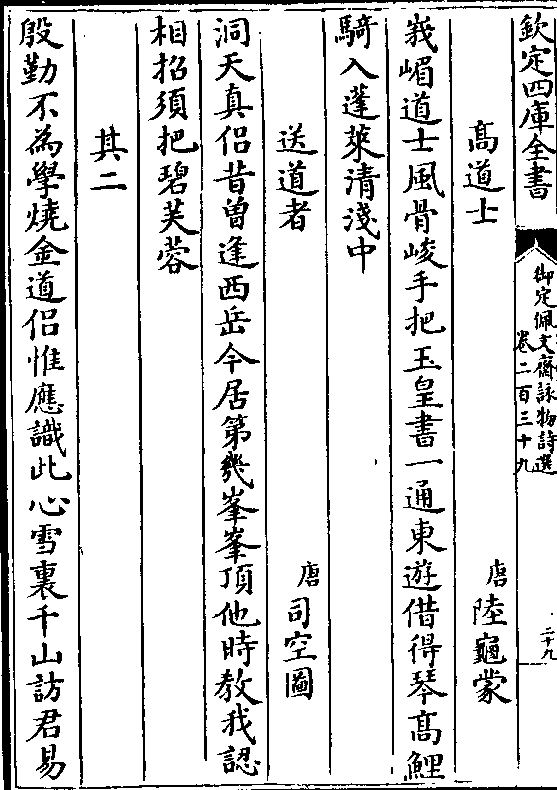 欽定四庫全書
御定佩文齋詠物詩選
卷二百三十九
二十九
高道士
唐
陸龜蒙
峩嵋道士風骨峻手把玉皇書一通東遊借得琴高鯉
騎入蓬萊清淺中
送道者
唐
司空圖
洞天真侶昔曾逢西岳今居第幾峯峯頂他時教我認
相招須把碧芙蓉
其二
殷勤不為學燒金道侶惟應識此心雪裏千山訪君易